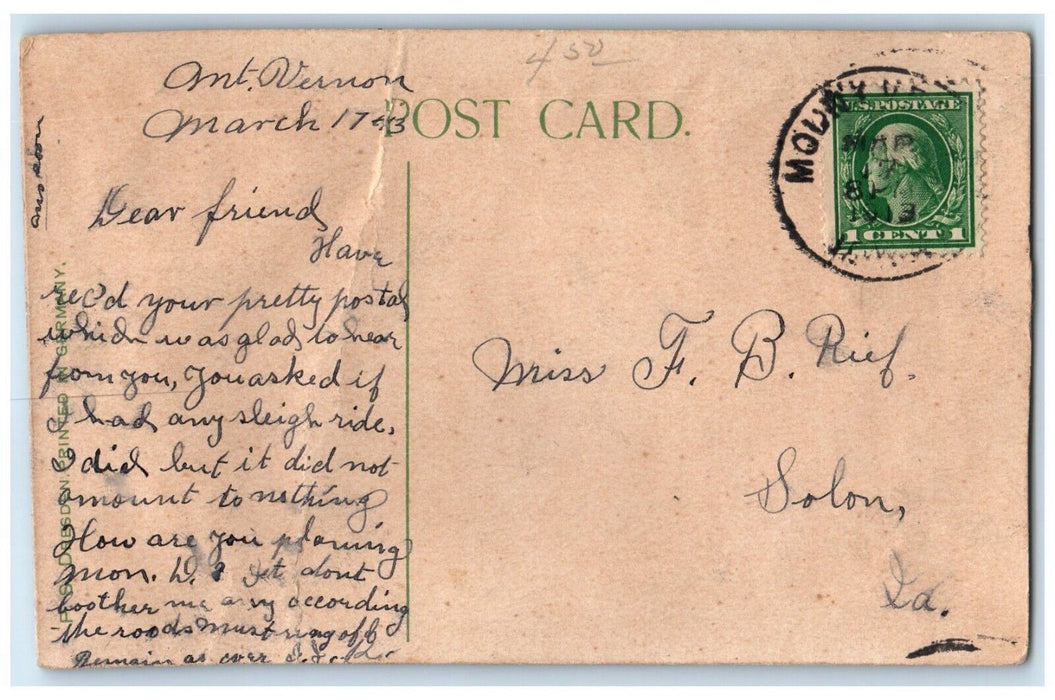 4 50
Mt. Vernon
March 17-13
POST CARD.
MOUNT
MAR
17
1913
U.S. POSTAGE
1 CENT 1
Dear friend,
Have
rec'd your pretty postal
which was glad to hear
from you, you asked if
I had any sleigh ride,
I did but it did not
amount to nothing
How are you planing
Mon. D. ? It dont
boother me any according
the roods must ring off
Remain as ever
ans soon
P. S. DRESDEN PRINTED IN GERMANY.
Miss F. B. Rief.
Solon,
Ia.